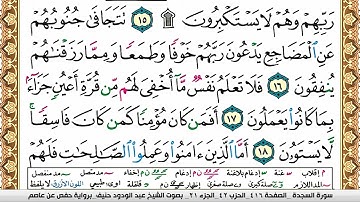 رَبِّهِمْ وَهُمْ لَا يَسْتَكْبِرُونَ ۩ ١٥ تَتَجَافَىٰ جُنُوبُهُمْ
عَنِ ٱلْمَضَاجِعِ يَدْعُونَ رَبَّهُمْ خَوْفًا وَطَمَعًا وَمِمَّا رَزَقْنَٰهُمْ
يُنفِقُونَ ١٦ فَلَا تَعْلَمُ نَفْسٌ مَّآ أُخْفِيَ لَهُم مِّن قُرَّةِ أَعْيُنٍ جَزَآءًۢ
بِمَا كَانُوا۟ يَعْمَلُونَ ١٧ أَفَمَن كَانَ مُؤْمِنًا كَمَن كَانَ فَاسِقًا ۚ
لَّا يَسْتَوُۥنَ ١٨ أَمَّا ٱلَّذِينَ ءَامَنُوا۟ وَعَمِلُوا۟ ٱلصَّٰلِحَٰتِ فَلَهُمْ
سورة السجدة - الصفحة ٤١٦ الحزب ٤٢ الجزء ٢١ - بصوت الشيخ عبد الودود حنيف - برواية حفص عن عاصم